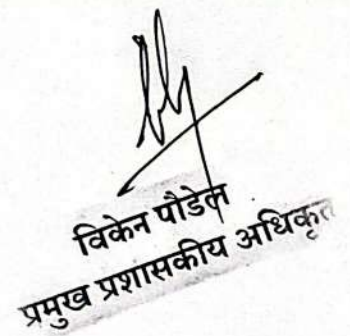 विकेन पौडेल
प्रमुख प्रशासकीय अधिकृत